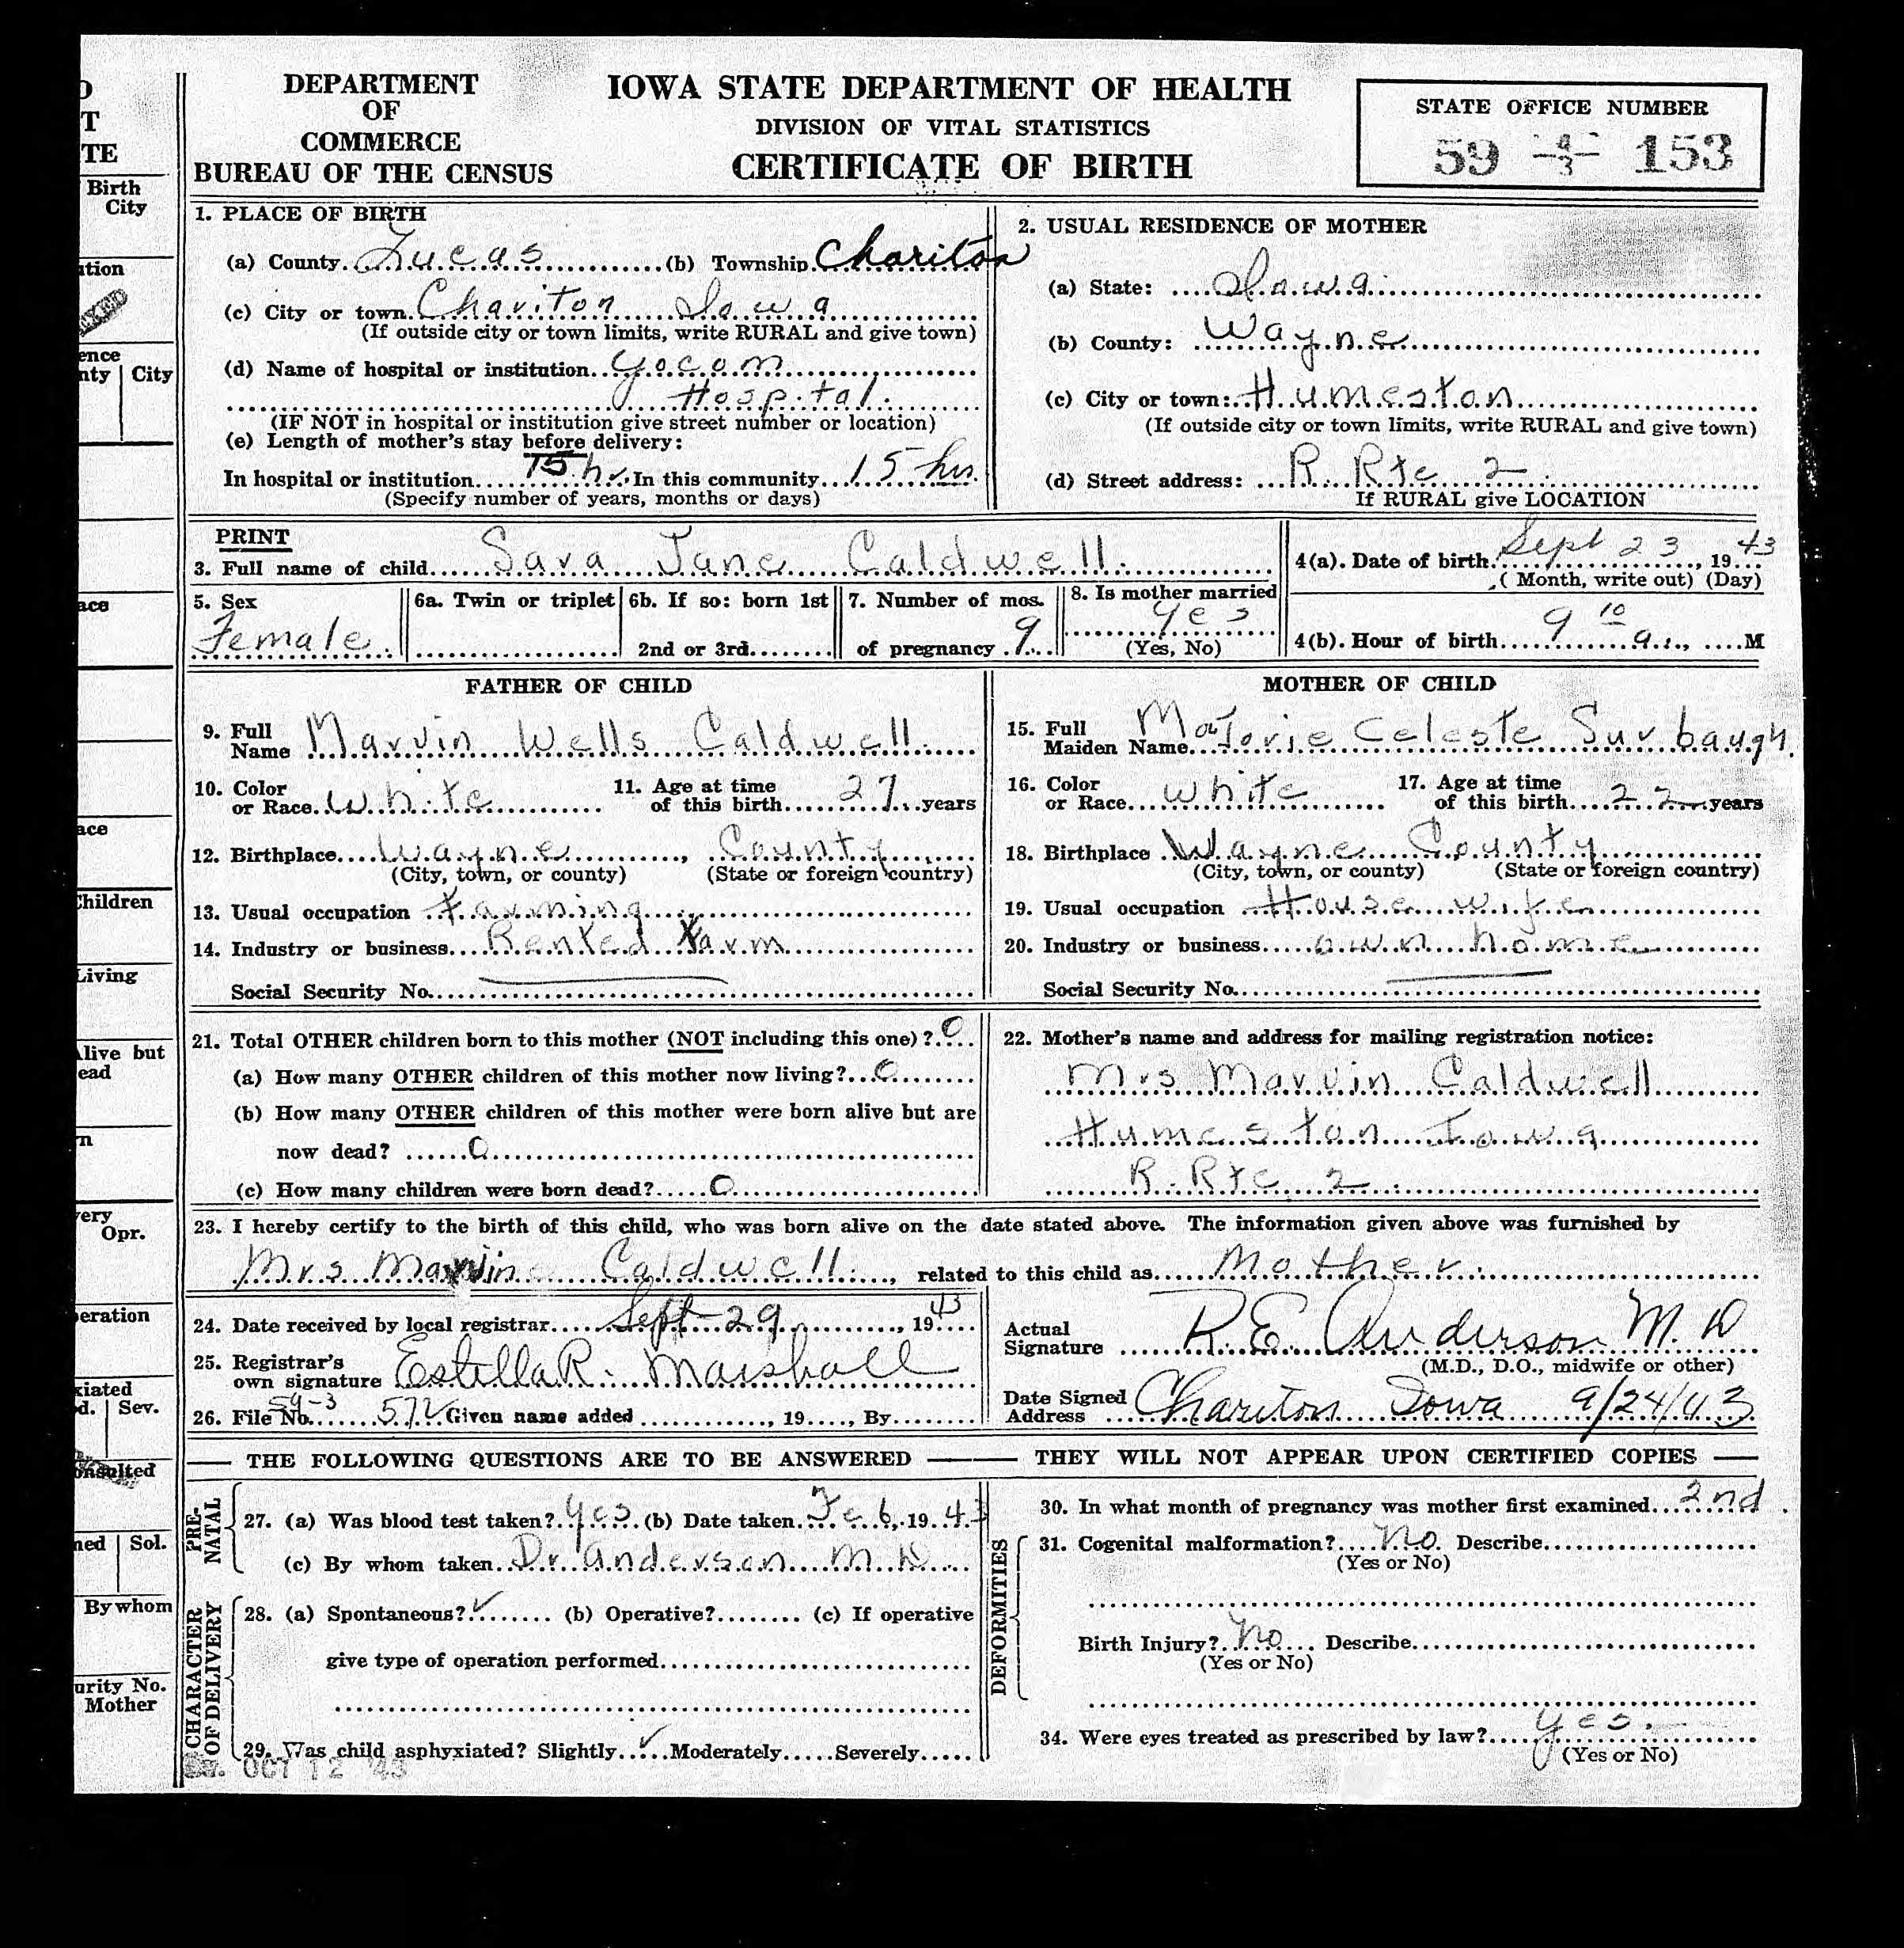 DEPARTMENT
OF
COMMERCE
BUREAU OF THE CENSUS
IOWA STATE DEPARTMENT OF HEALTH
DIVISION OF VITAL STATISTICS
CERTIFICATE OF BIRTH
STATE OFFICE NUMBER
59 43 153
1. PLACE OF BIRTH
(a) County Lucas (b) Township Chariton
(c) City or town Chariton Iowa
(If outside city or town limits, write RURAL and give town)
(d) Name of hospital or institution Yocom
Hospital.
(IF NOT in hospital or institution give street number or location)
(e) Length of mother's stay before delivery:
In hospital or institution 15 hr. In this community 15 hrs.
(Specify number of years, months or days)
2. USUAL RESIDENCE OF MOTHER
(a) State: Iowa
(b) County: Wayne
(c) City or town: Humeston
(If outside city or town limits, write RURAL and give town)
(d) Street address: R. Rte 2
If RURAL give LOCATION
PRINT
3. Full name of child Sara Jane Caldwell.
4(a). Date of birth Sept 23, 1943
(Month, write out) (Day)
5. Sex
Female.
6a. Twin or triplet
6b. If so: born 1st
2nd or 3rd
7. Number of mos.
of pregnancy 9
8. Is mother married
yes
(Yes, No)
4(b). Hour of birth 9 10 a., M
FATHER OF CHILD
9. Full
Name Marvin Wells Caldwell.
10. Color
or Race White
11. Age at time
of this birth 27 years
12. Birthplace Wayne, County
(City, town, or county) (State or foreign country)
13. Usual occupation farming
14. Industry or business Rented farm
Social Security No.
MOTHER OF CHILD
15. Full
Maiden Name Marjorie Celeste Surbaugh.
16. Color
or Race White
17. Age at time
of this birth 22 years
18. Birthplace Wayne County
(City, town, or county) (State or foreign country)
19. Usual occupation House wife
20. Industry or business own home
Social Security No.
21. Total OTHER children born to this mother (NOT including this one)? 0
(a) How many OTHER children of this mother now living? 0
(b) How many OTHER children of this mother were born alive but are
now dead? 0
(c) How many children were born dead? 0
22. Mother's name and address for mailing registration notice:
Mrs Marvin Caldwell
Humeston Iowa
R. Rte 2
23. I hereby certify to the birth of this child, who was born alive on the date stated above. The information given above was furnished by
Mrs Marvin Caldwell., related to this child as Mother.
24. Date received by local registrar Sept 29, 1943
25. Registrar's
own signature Estella R. Marshall
26. File No. 59-3 572 Given name added , 19 , By
Actual
Signature R.E. Anderson M.D
(M.D., D.O., midwife or other)
Date Signed
Address Chariton Iowa 9/24/43
THE FOLLOWING QUESTIONS ARE TO BE ANSWERED — THEY WILL NOT APPEAR UPON CERTIFIED COPIES
PRE-NATAL
27. (a) Was blood test taken? Yes (b) Date taken Feb, 1943
(c) By whom taken Dr. Anderson M.D.
CHARACTER OF DELIVERY
28. (a) Spontaneous? ✓ (b) Operative? (c) If operative
give type of operation performed
29. Was child asphyxiated? Slightly ✓ Moderately Severely
OCT 12 '43
DEFORMITIES
30. In what month of pregnancy was mother first examined 2nd.
31. Cogenital malformation? No. Describe
(Yes or No)
Birth Injury? No Describe
(Yes or No)
34. Were eyes treated as prescribed by law? yes.
(Yes or No)
TE
Birth
City
City
Children
Living
Alive but
Opr.
Sev.
Sol.
By whom
Mother